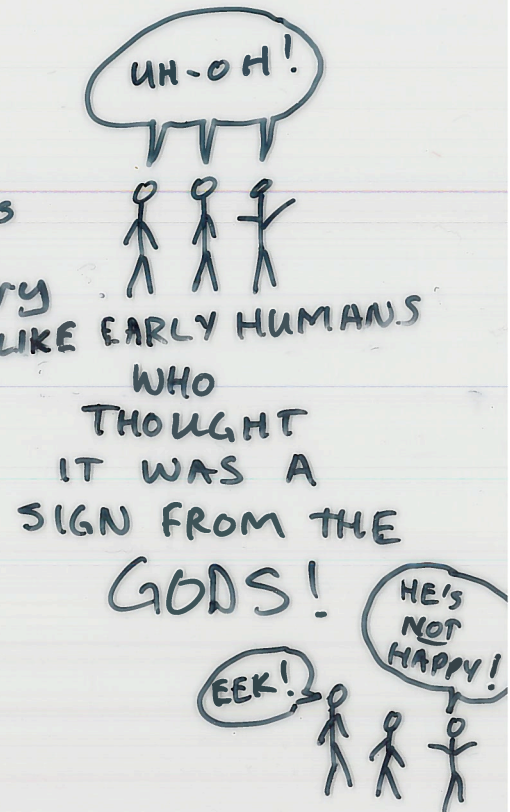 UH-OH!
LIKE EARLY HUMANS
WHO
THOUGHT
IT WAS A
SIGN FROM THE
GODS!
HE'S
NOT
HAPPY!
EEK!